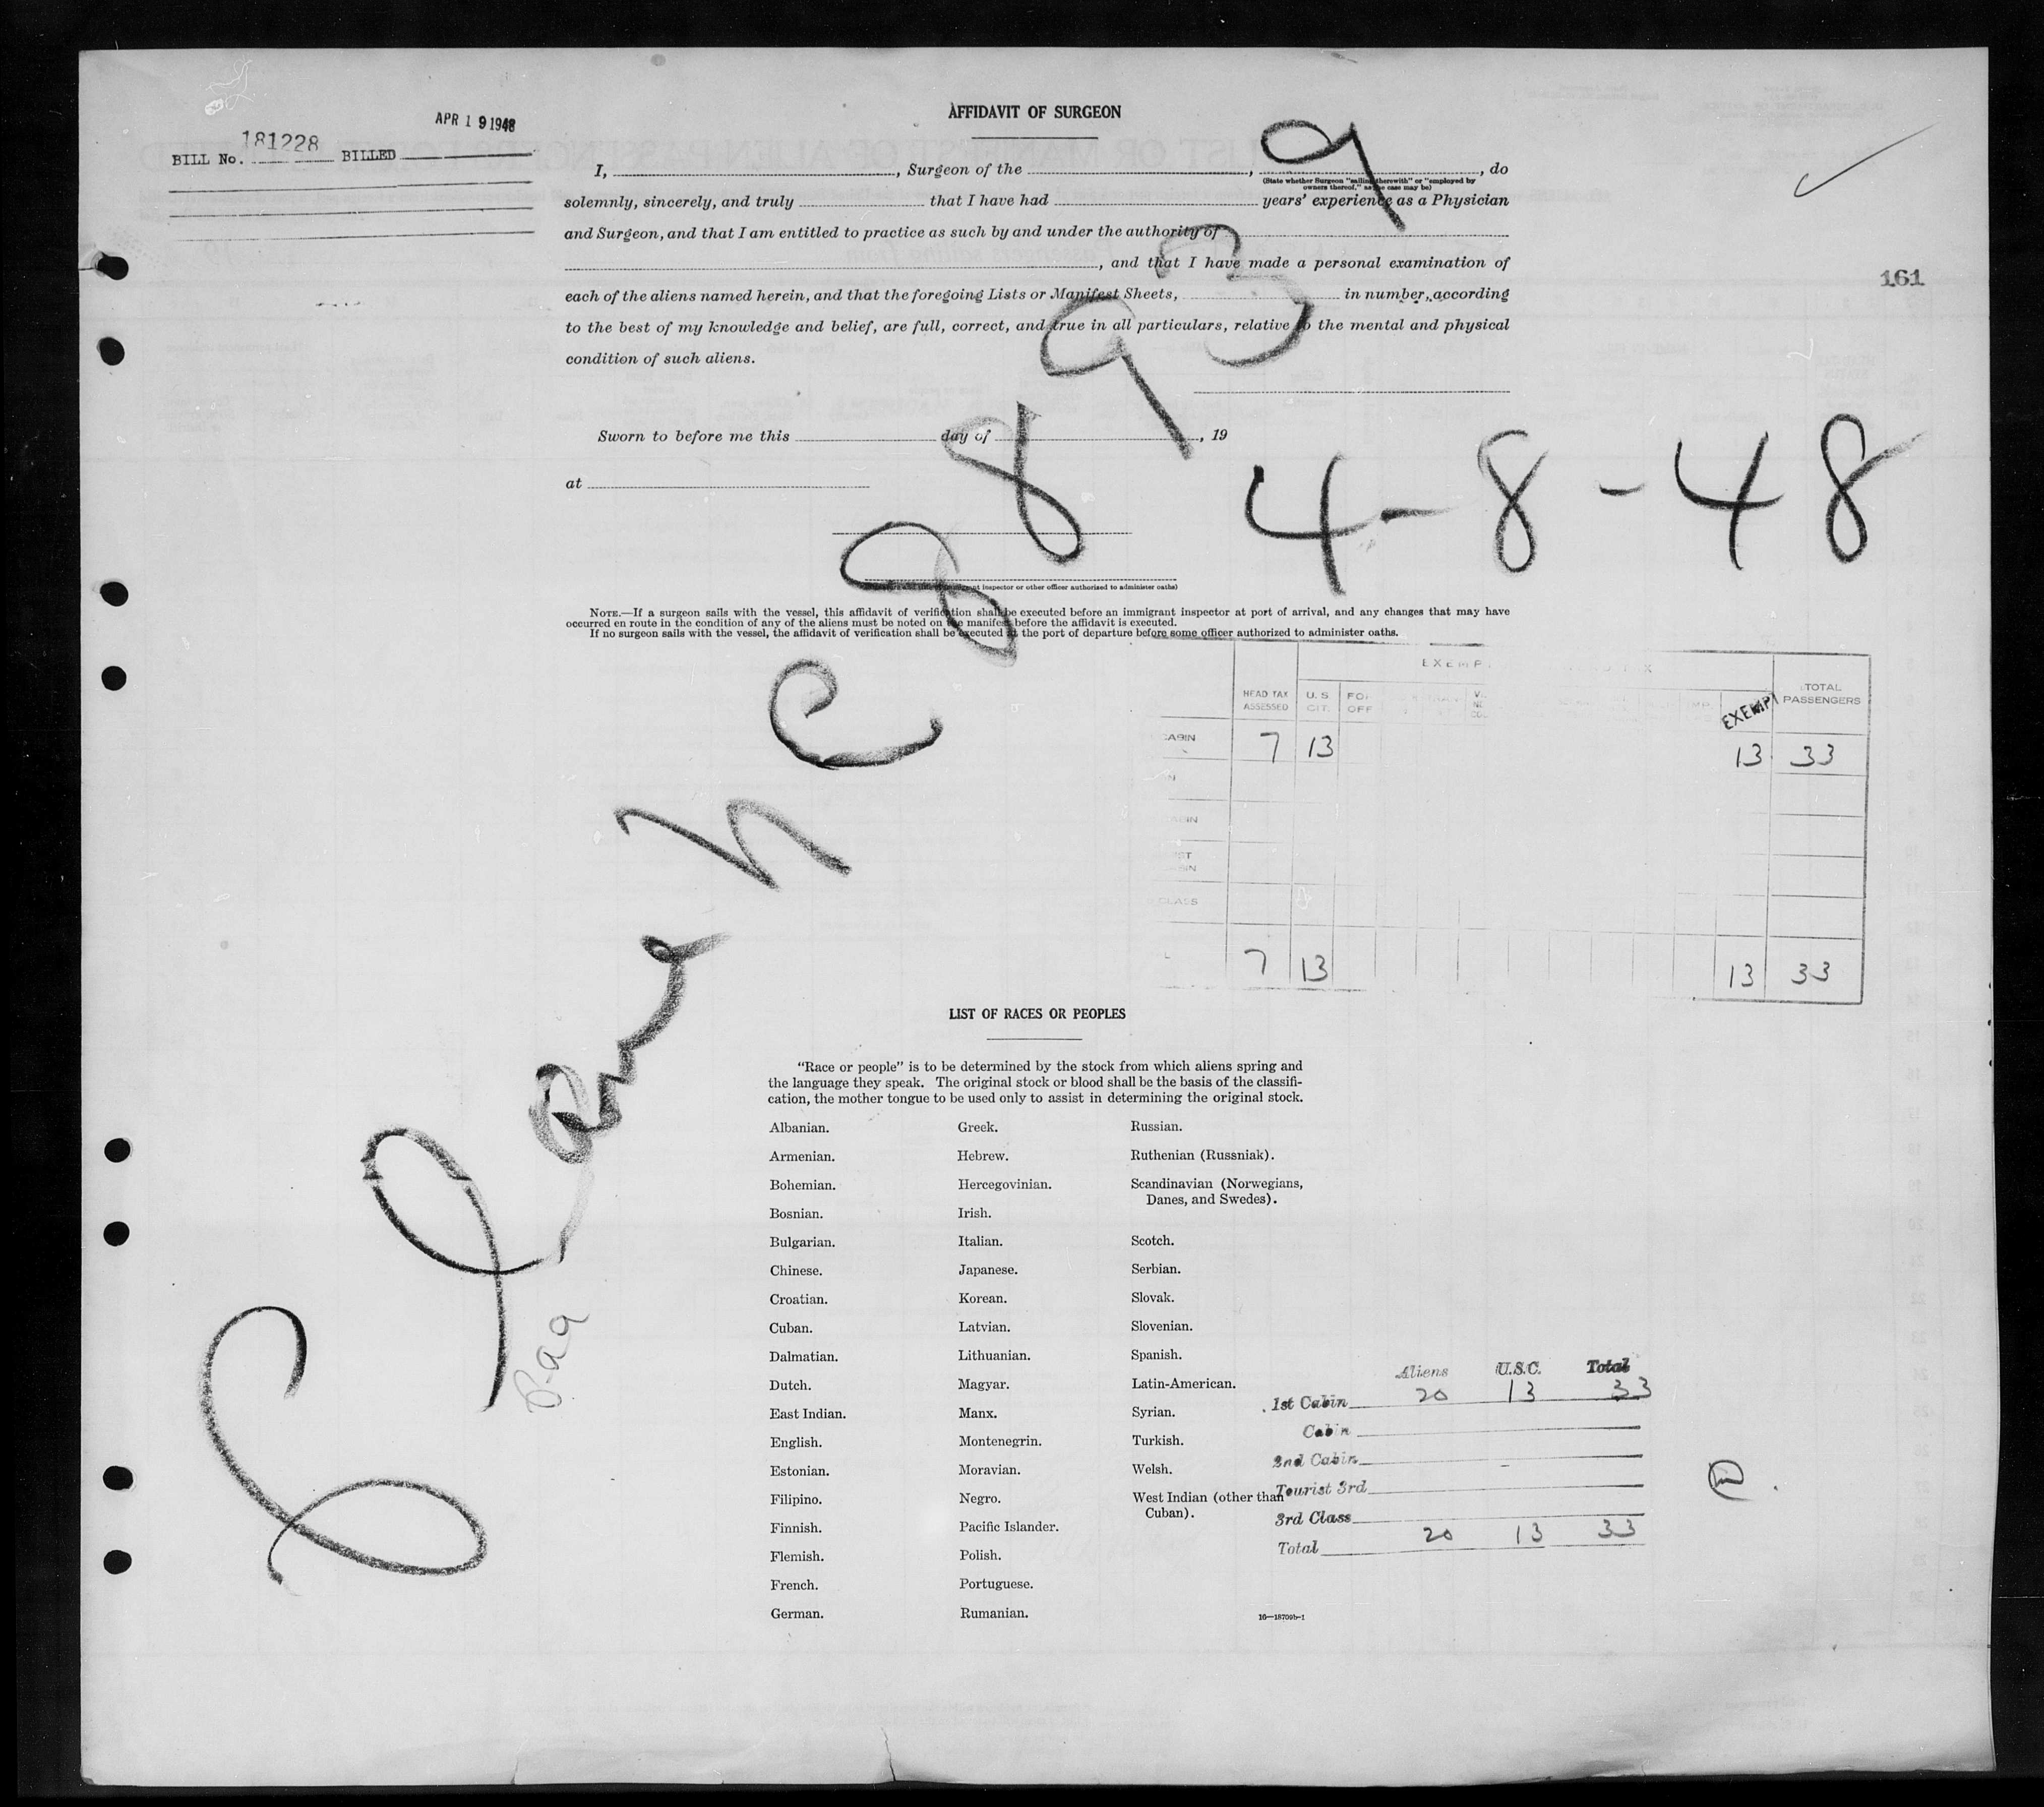 APR 19 1948
BILL No. 181228 BILLED
AFFIDAVIT OF SURGEON
I, , Surgeon of the , , do
(State whether Surgeon "sailing therewith" or "employed by
owners thereof," as the case may be)
solemnly, sincerely, and truly that I have had years' experience as a Physician
and Surgeon, and that I am entitled to practice as such by and under the authority of
, and that I have made a personal examination of
each of the aliens named herein, and that the foregoing Lists or Manifest Sheets, in number, according
to the best of my knowledge and belief, are full, correct, and true in all particulars, relative to the mental and physical
condition of such aliens.
161
Sworn to before me this day of , 19
at
4-8-48
immigrant inspector or other officer authorized to administer oaths)
NOTE.—If a surgeon sails with the vessel, this affidavit of verification shall be executed before an immigrant inspector at port of arrival, and any changes that may have
occurred en route in the condition of any of the aliens must be noted on the manifest before the affidavit is executed.
If no surgeon sails with the vessel, the affidavit of verification shall be executed at the port of departure before some officer authorized to administer oaths.
88939
HEAD TAX ASSESSED U. S. CIT. EXEMPT TOTAL PASSENGERS
CABIN 7 13 13 33
CLASS
7 13 13 33
LIST OF RACES OR PEOPLES
"Race or people" is to be determined by the stock from which aliens spring and
the language they speak. The original stock or blood shall be the basis of the classifi-
cation, the mother tongue to be used only to assist in determining the original stock.
Albanian. Greek. Russian.
Armenian. Hebrew. Ruthenian (Russniak).
Bohemian. Hercegovinian. Scandinavian (Norwegians,
Danes, and Swedes).
Bosnian. Irish.
Bulgarian. Italian. Scotch.
Chinese. Japanese. Serbian.
Croatian. Korean. Slovak.
Cuban. Latvian. Slovenian.
Dalmatian. Lithuanian. Spanish.
Dutch. Magyar. Latin-American.
East Indian. Manx. Syrian.
English. Montenegrin. Turkish.
Estonian. Moravian. Welsh.
Filipino. Negro. West Indian (other than
Cuban).
Finnish. Pacific Islander.
Flemish. Polish.
French. Portuguese.
German. Rumanian.
16—18709b-1
Aliens U.S.C. Total
1st Cabin 20 13 33
Cabin
2nd Cabin
Tourist 3rd
3rd Class
Total 20 13 33